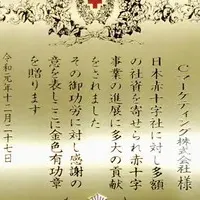 Cマーケティング株式会社 様
日本赤十字社に対し多額
の社資を寄せられ赤十字
事業の進展に多大の貢献
をされました
その御功労に対し感謝の
意を表しここに金色有功章
を贈ります
令和元年十二月二十七日